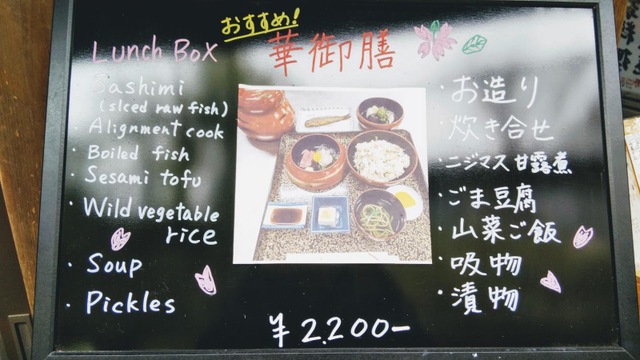 おすすめ!
Lunch Box
華御膳
Sashimi
(slced raw fish)
Alignment cook
Boiled fish
Sesami tofu
Wild vegetable
rice
Soup
Pickles
・お造り
・炊き合せ
・ニジマス甘露煮
・ごま豆腐
・山菜ご飯
・吸物
・漬物
¥2.200-